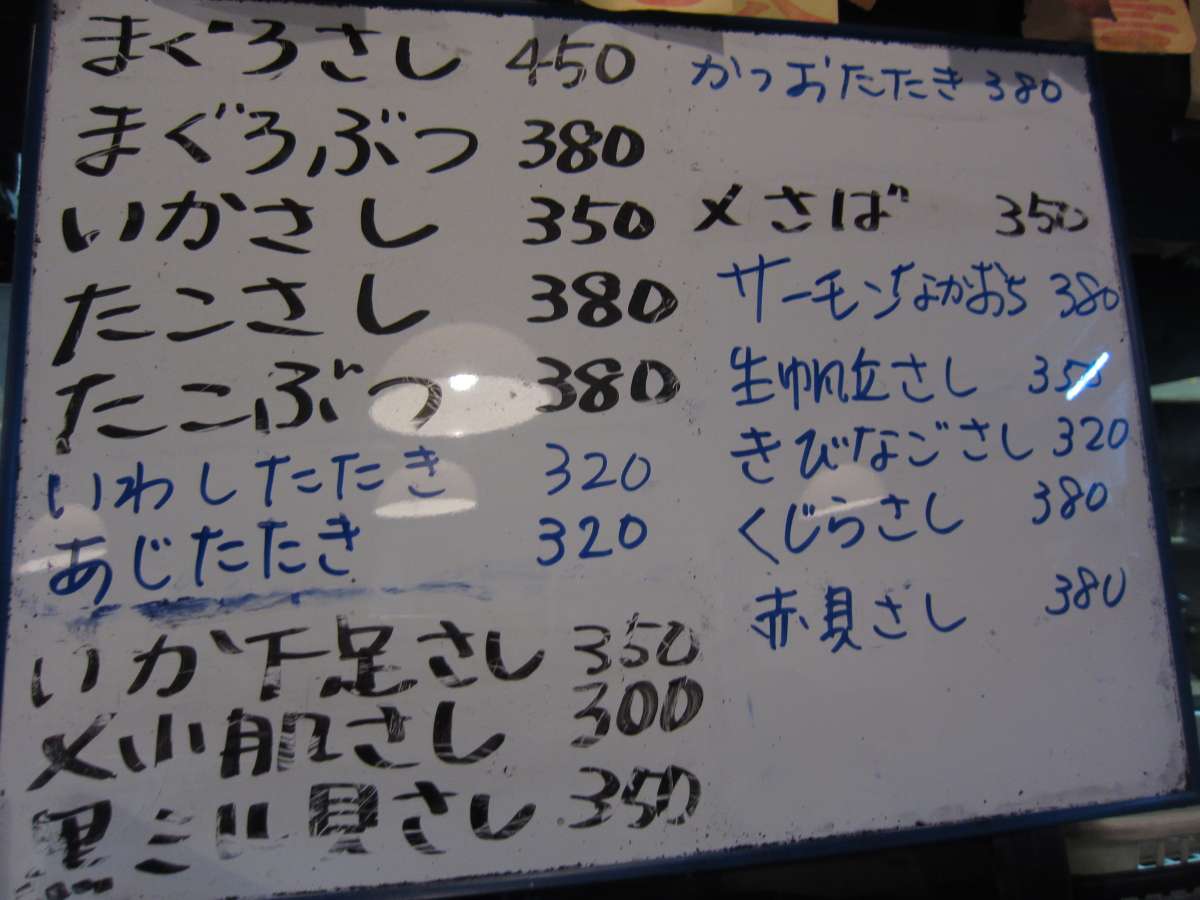 まぐろさし 450
まぐろぶつ 380
いかさし 350
たこさし 380
たこぶつ 380
いわしたたき 320
あじたたき 320
いか下足さし 350
〆小肌さし 300
黒ミル貝さし 350
かつおたたき 380
〆さば 350
サーモンなかおち 380
生帆立さし 350
きびなごさし 320
くじらさし 380
赤貝さし 380